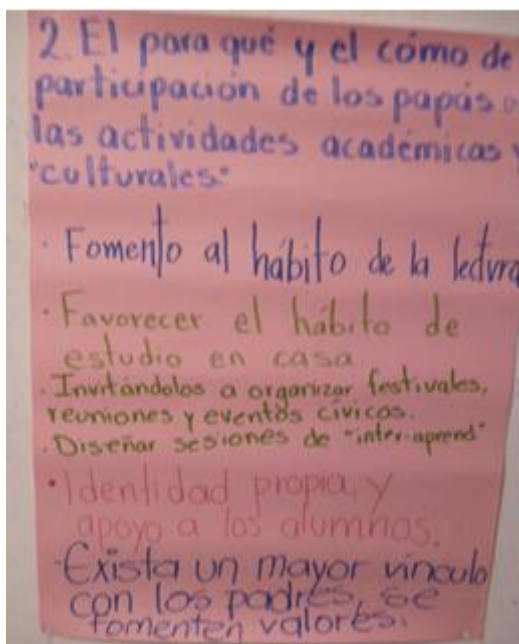 2. El para qué y el cómo de
participación de los papás
las actividades académicas y
"culturales"
· Fomento al hábito de la lectura
· Favorecer el hábito de
estudio en casa
· Invitándolos a organizar festivales,
reuniones y eventos cívicos.
· Diseñar sesiones de "inter-aprend"
· Identidad propia y
apoyo a los alumnos.
· Exista un mayor vínculo
con los padres, se
fomenten valores.